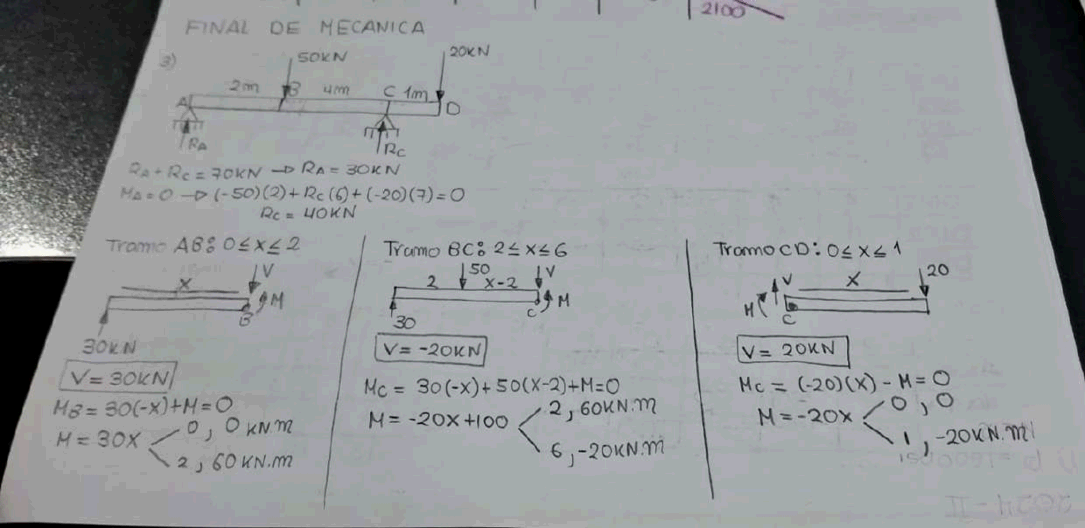 2100
FINAL DE MECANICA
3)
50KN
20KN
2m
B
4m
C 1m
A
D
RA
RC
RA + RC = 70KN → RA = 30KN
MA = 0 → (-50)(2) + RC(6) + (-20)(7) = 0
RC = 40KN
Tramo AB: 0 ≤ x ≤ 2
x
V
M
B
30KN
V = 30KN
MB = 30(-x) + M = 0
M = 30x
0, 0 KN.m
2, 60 KN.m
Tramo BC: 2 ≤ x ≤ 6
50
V
2
x-2
M
C
30
V = -20KN
MC = 30(-x) + 50(x-2) + M = 0
M = -20x + 100
2, 60KN.m
6, -20KN.m
Tramo CD: 0 ≤ x ≤ 1
V
x
20
M
C
V = 20KN
MC = (-20)(x) - M = 0
M = -20x
0, 0
1, -20KN.m